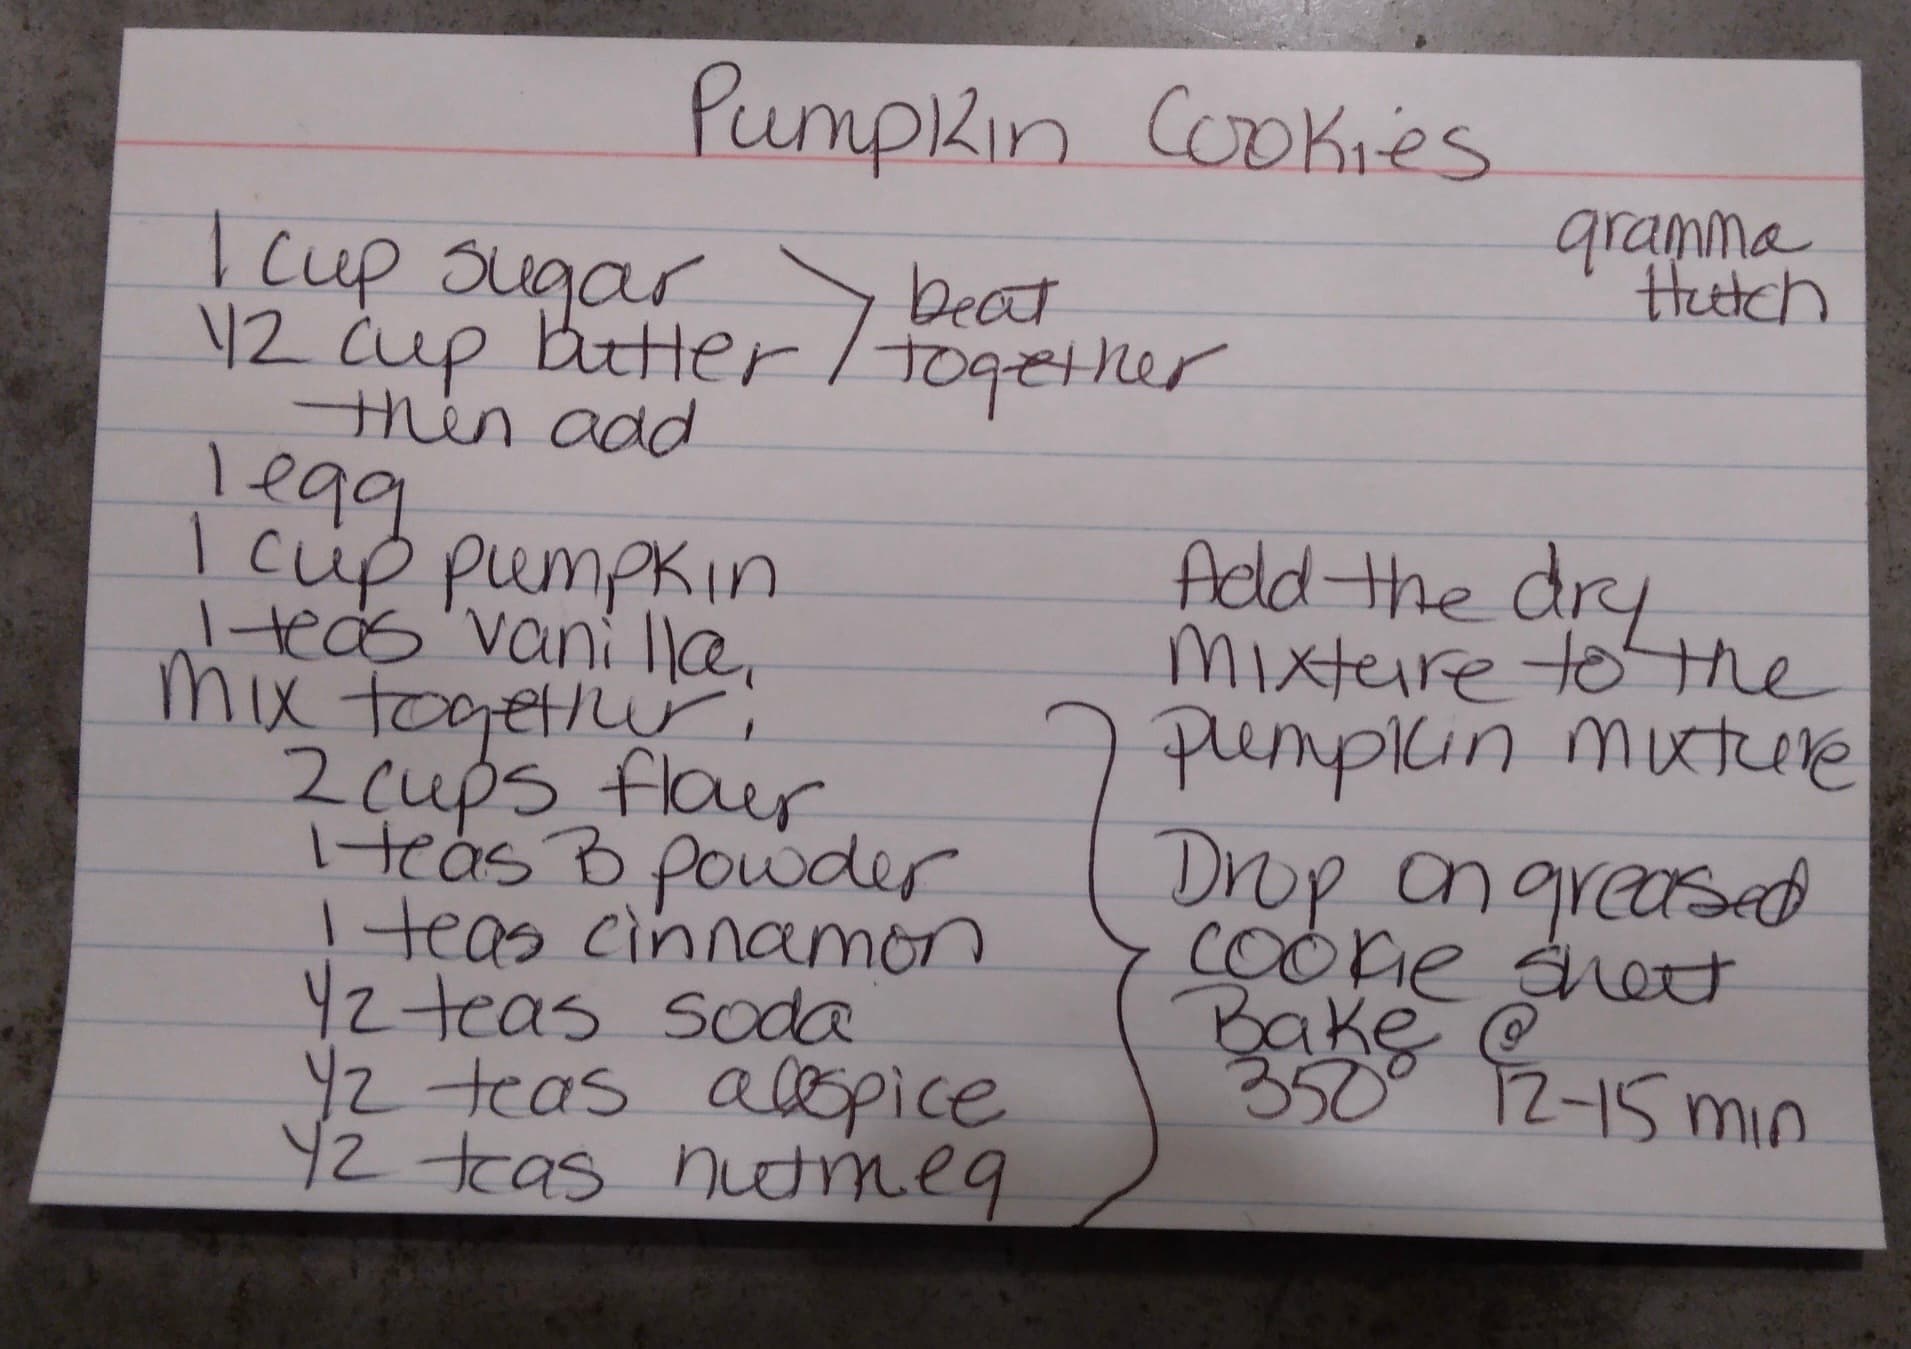 Pumpkin Cookies
gramma
Hutch
1 cup sugar
1/2 cup butter
beat
together
then add
1 egg
1 cup pumpkin
1 teas vanilla,
Mix together,
2 cups flour
1 teas B powder
1 teas cinnamon
1/2 teas soda
1/2 teas allspice
1/2 teas nutmeg
Add the dry
mixture to the
pumpkin mixture
Drop on greased
cookie sheet
Bake @
350° 12-15 min